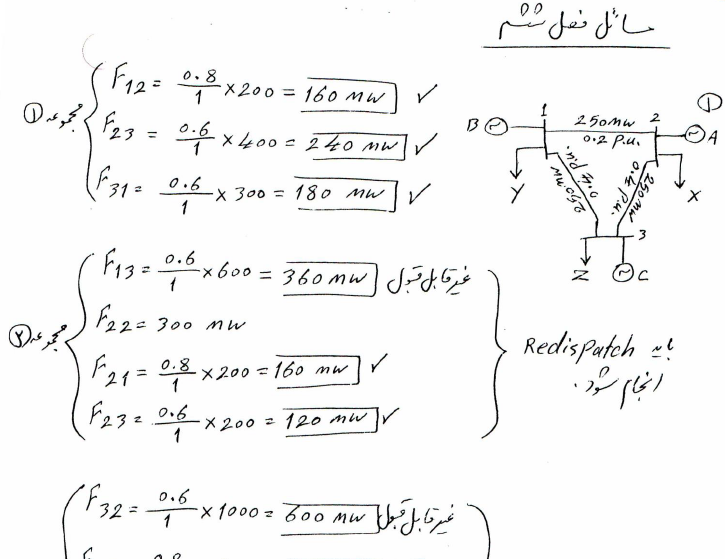 مسائل فصل ششم
①
مجموعه ①
F12 = 0.8/1 × 200 = 160 MW ✓
F23 = 0.6/1 × 400 = 240 MW ✓
F31 = 0.6/1 × 300 = 180 MW ✓
B 1 250MW 2 A
0.2 P.U.
Y 0.4 P.U. 250 MW
0.4 P.U. 250 MW X
3
Z C
مجموعه ②
F13 = 0.6/1 × 600 = 360 MW غیر قابل قبول
F22 = 300 MW
F21 = 0.8/1 × 200 = 160 MW ✓
F23 = 0.6/1 × 200 = 120 MW ✓
باید Redispatch
انجام شود.
F32 = 0.6/1 × 1000 = 600 MW غیر قابل قبول